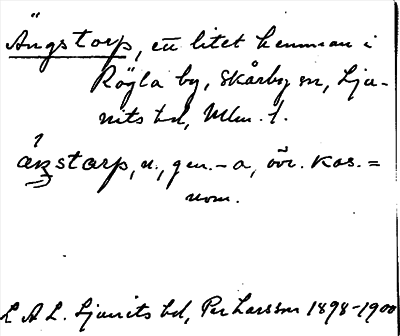 Ängstorp, ett litet hemman i
Rögla by, Skårby sn, Lju-
nits hd, Mlm. l.
áŋstarp, n., gen. -a, övr. kas. =
nom.
L A L. Ljunits hd, Per Larsson 1898-1900